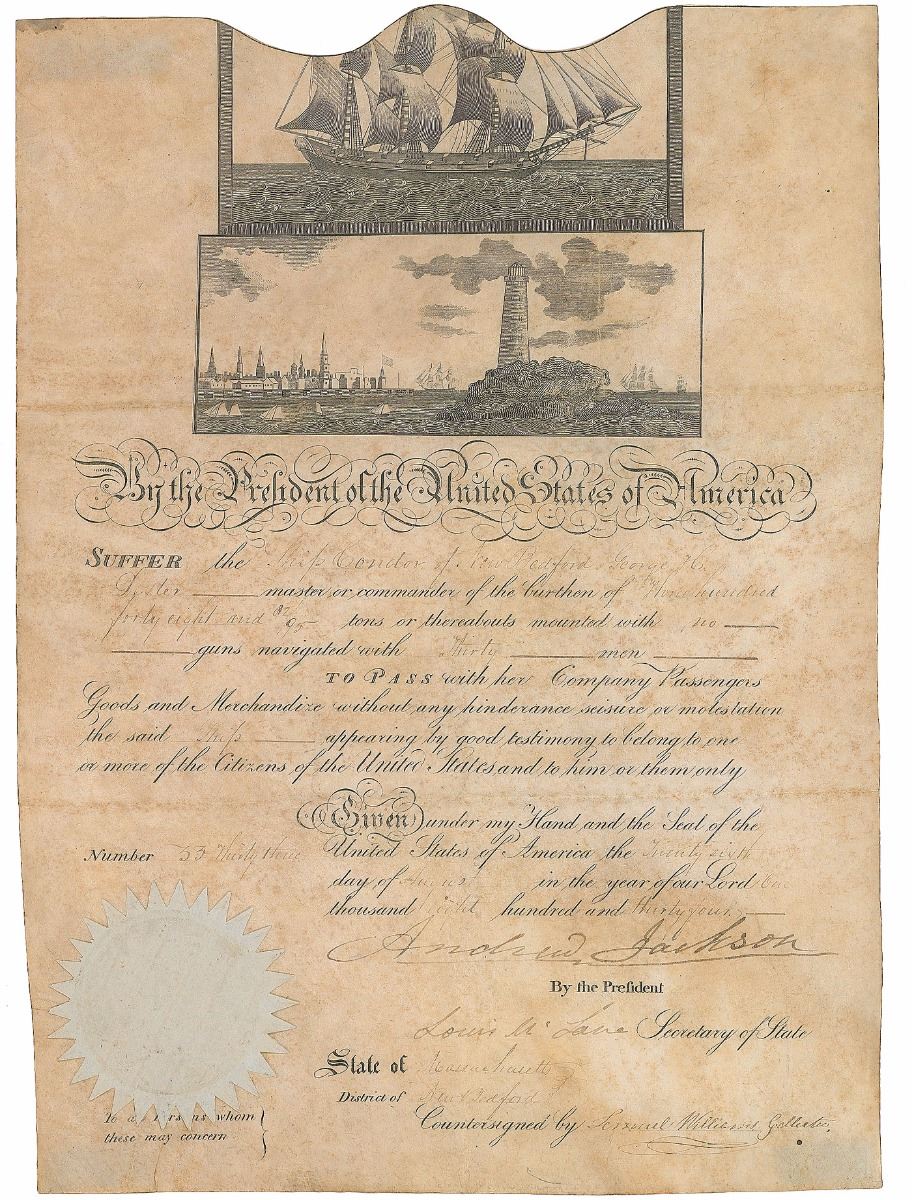 By the President of the United States of America
SUFFER the Ship Condor of New Bedford George H.
Dexter master or commander of the burthen of Three hundred
forty eight and 82/95 tons or thereabouts mounted with no
guns navigated with Thirty men
TO PASS with her Company Passengers
Goods and Merchandize without any hinderance seisure or molestation
the said Ship appearing by good testimony to belong to one
or more of the Citizens of the United States and to him or them only
Given under my Hand and the Seal of the
Number 33 Thirty three United States of America the Twenty sixth
day of August in the year of our Lord One
thousand Eight hundred and thirty four
Andrew Jackson
By the President
Louis McLane Secretary of State
State of Massachusetts
District of New Bedford
To a whom
these may concern
Countersigned by Lemuel Williams Collector